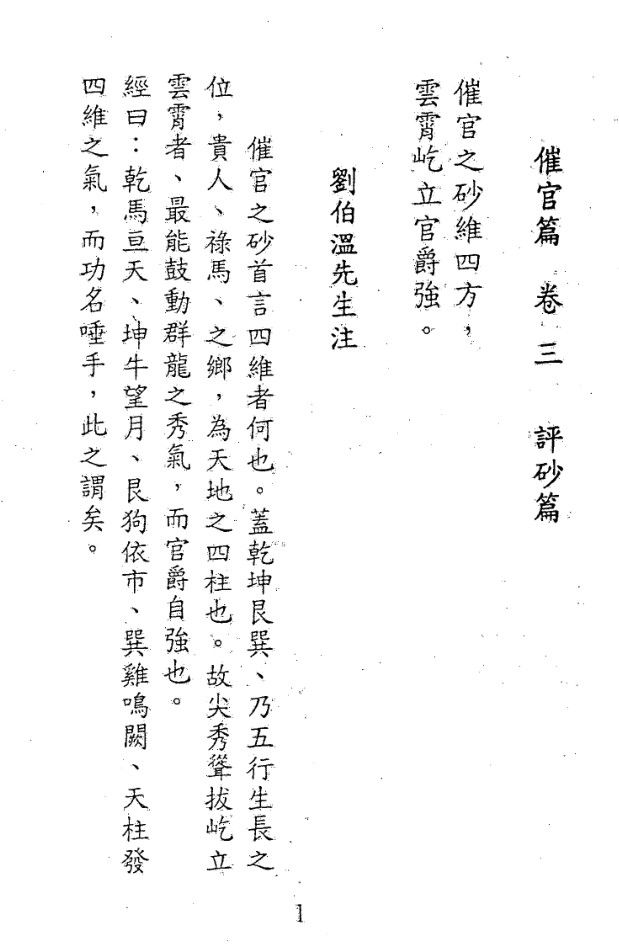 催官篇 卷三 評砂篇
催官之砂維四方，
雲霄屹立官爵強。
劉伯溫先生注
催官之砂首言四維者何也。蓋乾坤艮巽、乃五行生長之
位，貴人、祿馬、之鄉，為天地之四柱也。故尖秀聳拔屹立
雲霄者、最能鼓動群龍之秀氣，而官爵自強也。
經曰：乾馬亘天、坤牛望月、艮狗依市、巽雞鳴闕、天柱發
四維之氣，而功名唾手，此之謂矣。
1